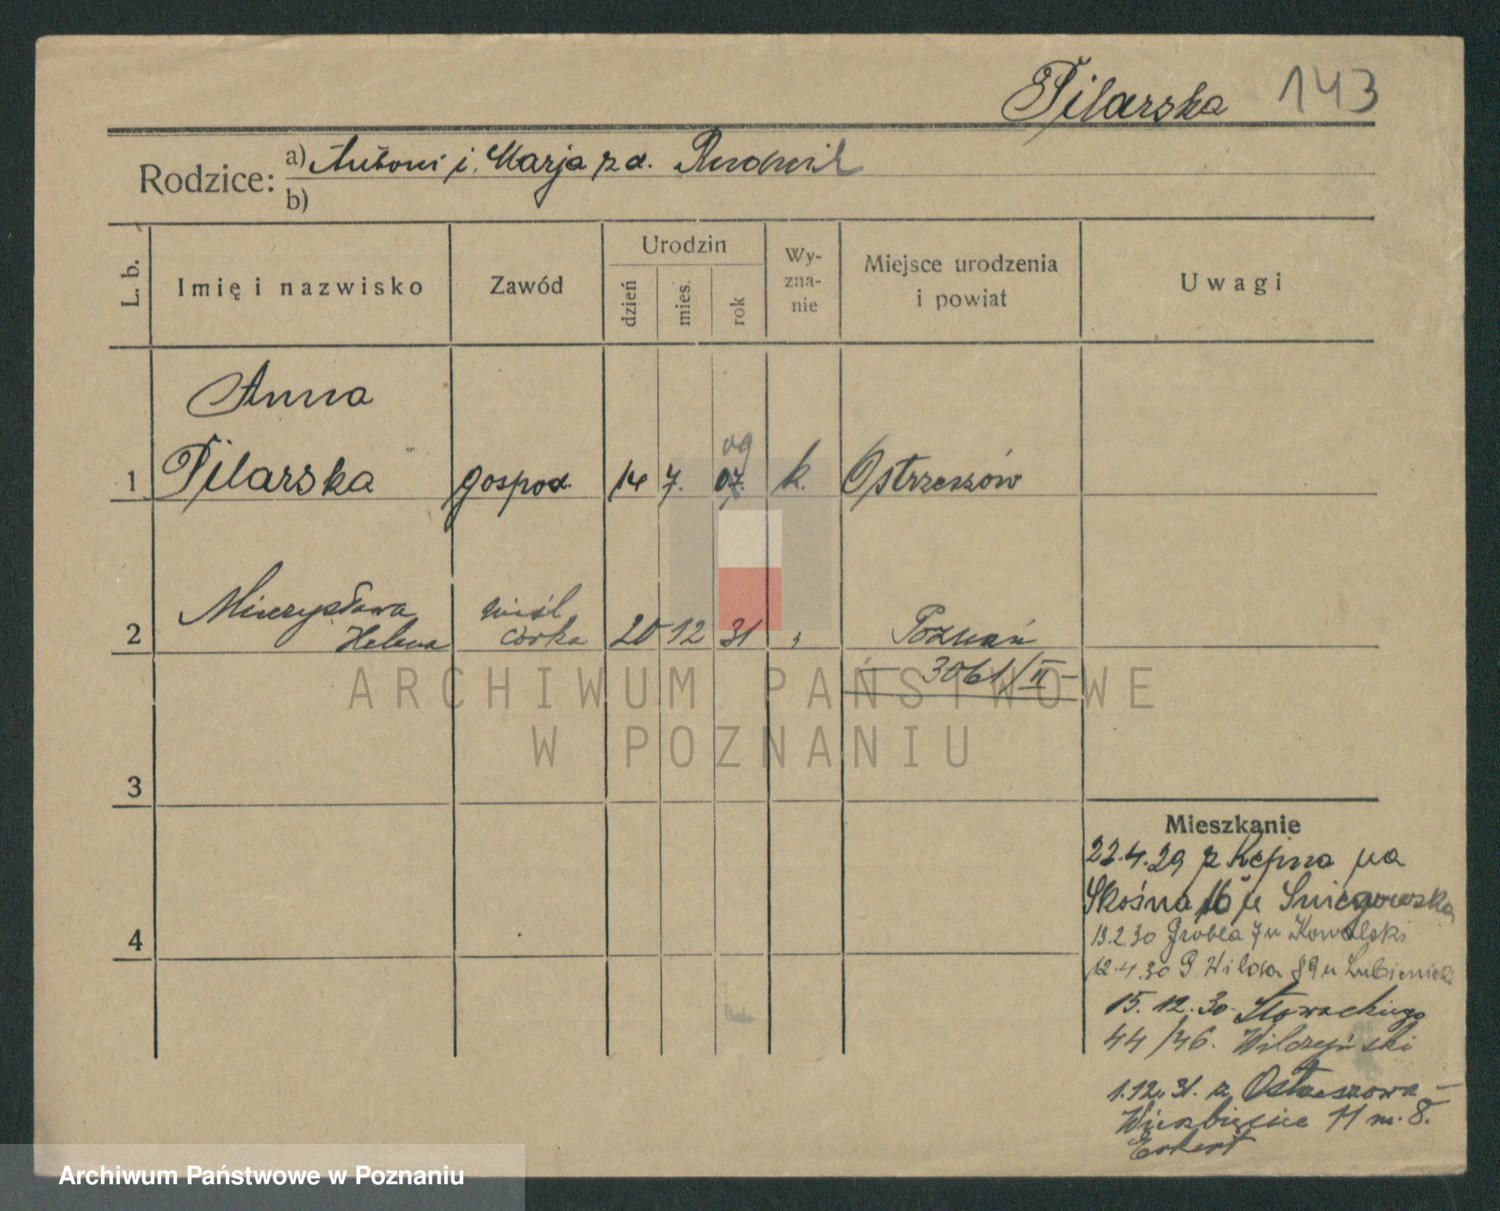 Pilarska 143
Rodzice: a) Antoni i Marja z d.
b)
L. b. Imię i nazwisko Zawód Urodzin dzień mies. rok Wy-zna-nie Miejsce urodzenia i powiat Uwagi
Anna
09
1 Pilarska gospod. 14 7. 07. k. Ostrzeszów
Mieczysława nieśl.
2 Helena córka 20 12 31 " Poznań
3061/II
ARCHIWUM PAŃSTWOWE
W POZNANIU
3
Mieszkanie
22.4.29 z Kępna na
Skośna 16 u Sniegowska
4
13.2.30 Grobla 7 u Kowalski
12.4.30 G Wilda 89 u
15.12.30. Słowackiego
44/46. Wilczyński
1.12.31. z Ostrzeszowa -
Wierzbięcice 11 m. 8.
Eckert
Archiwum Państwowe w Poznaniu